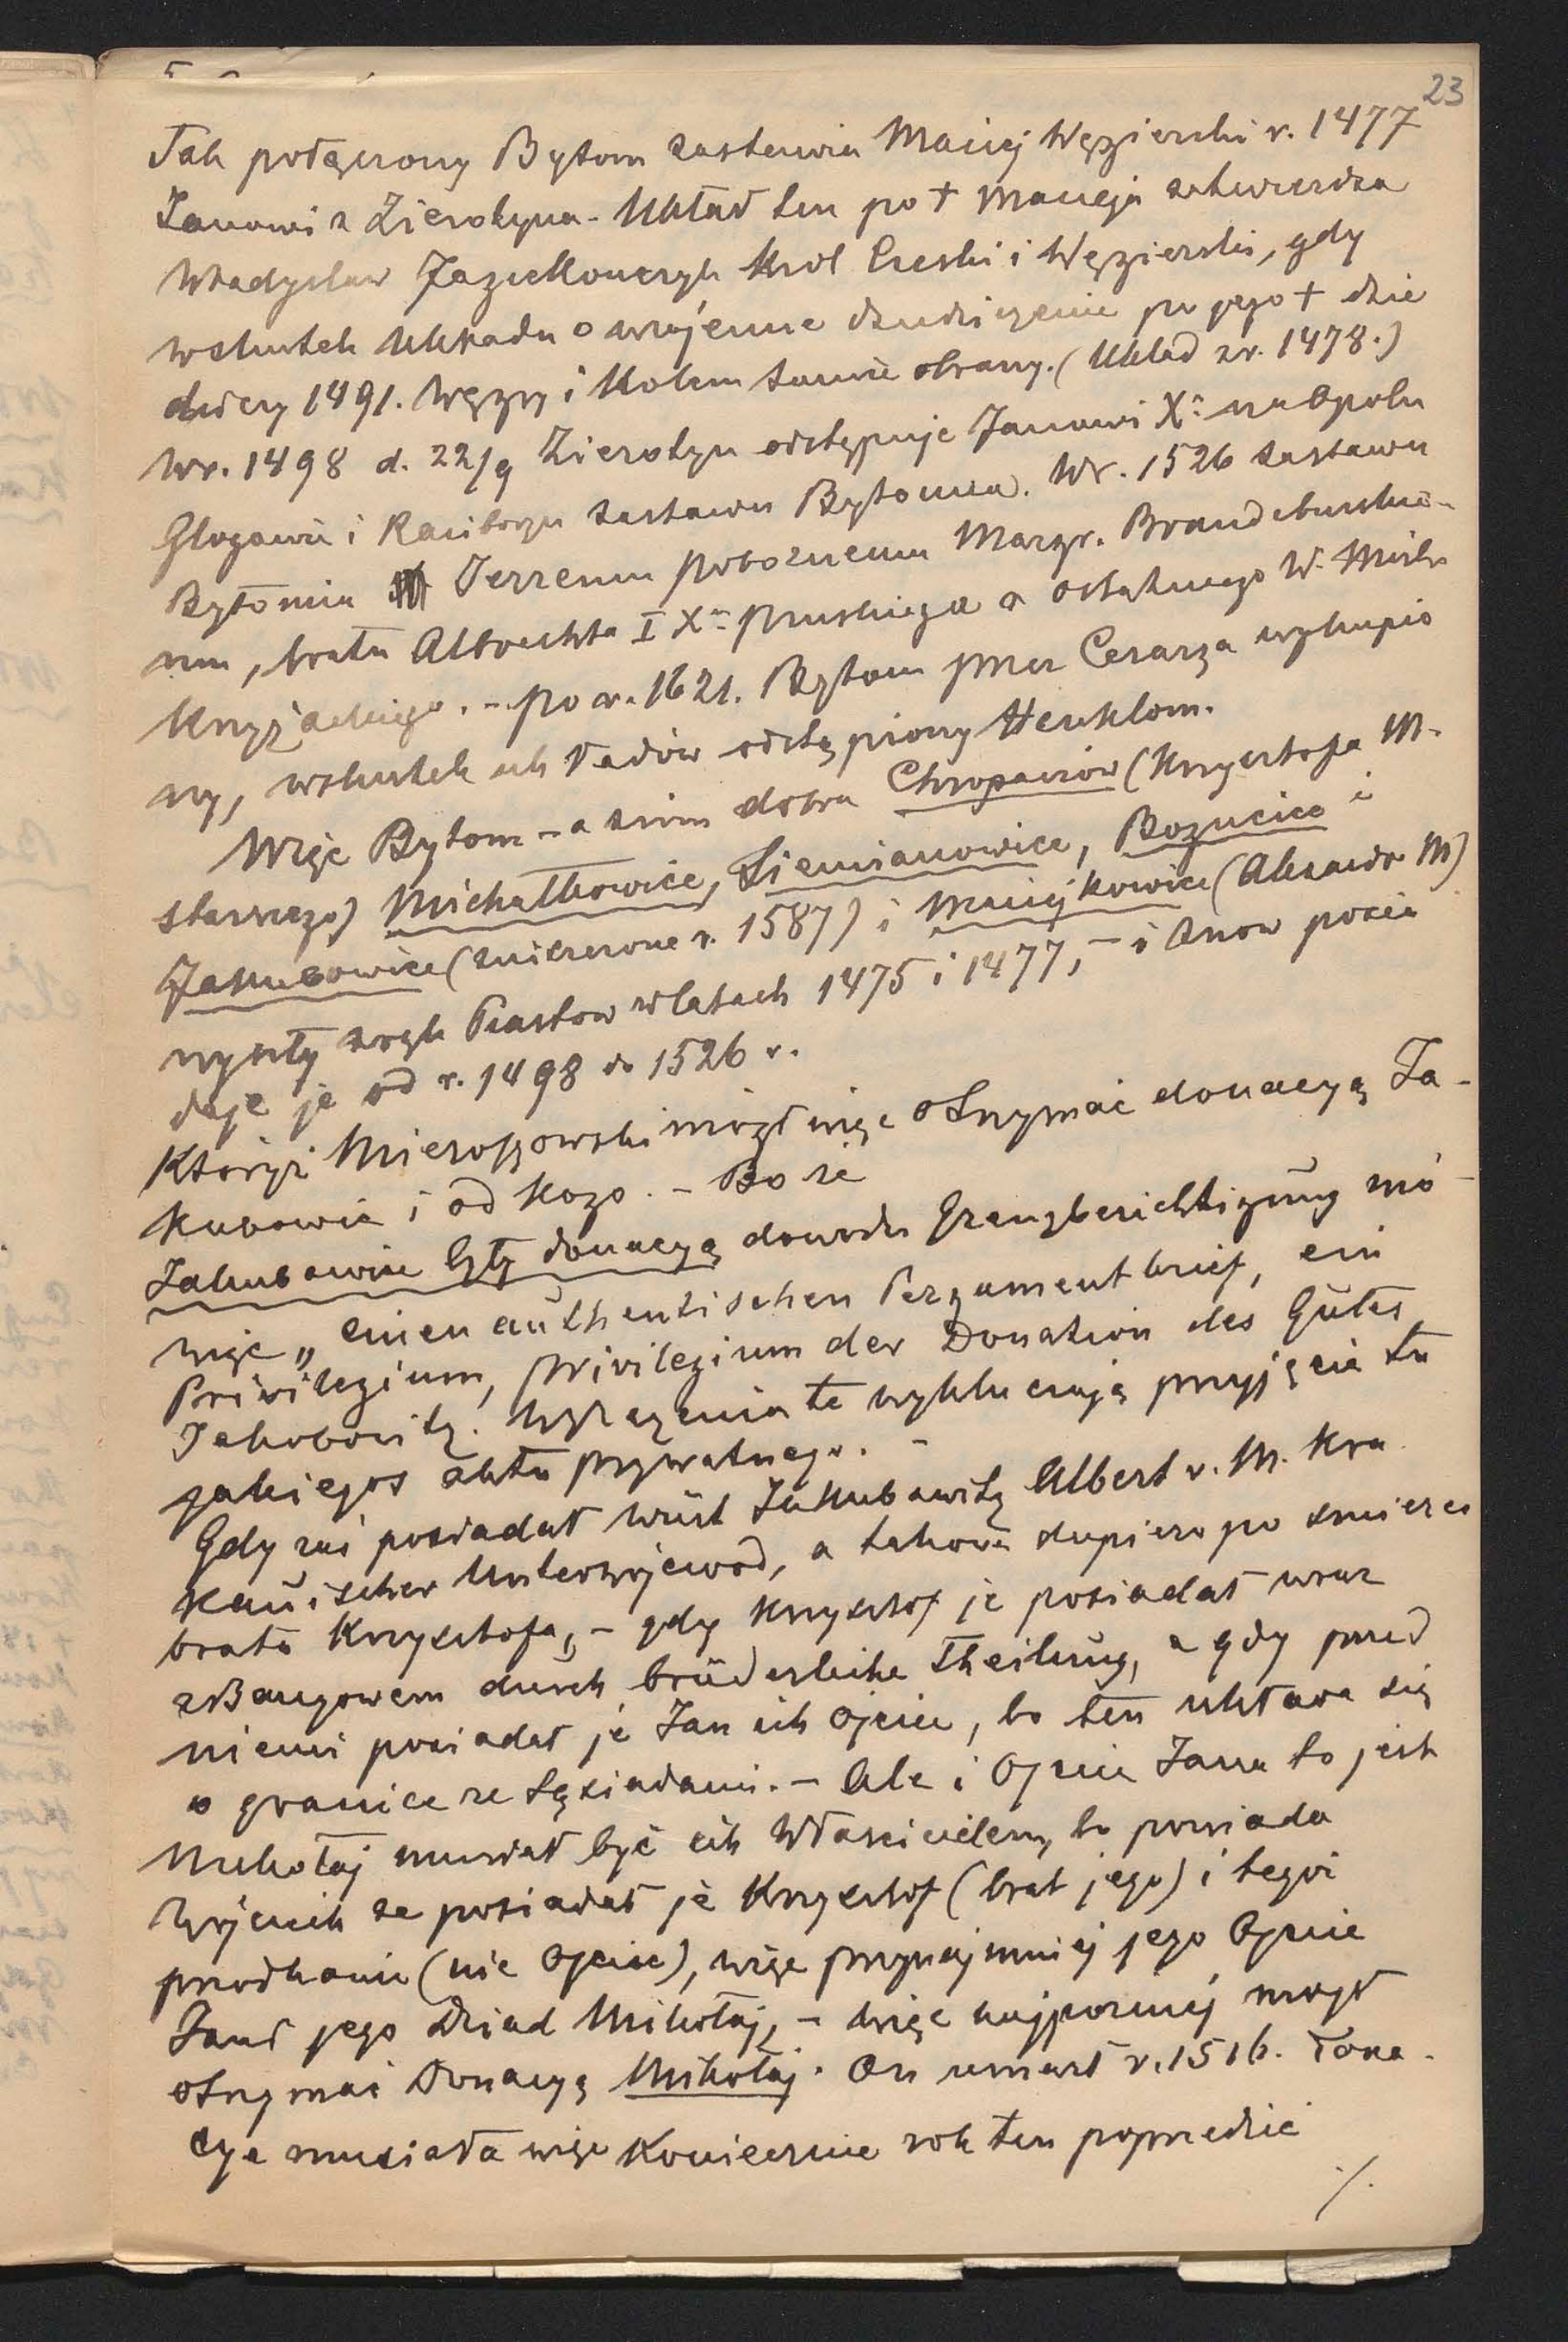 23
Tak połączony Bytom zastawia Maciej Węgierski r. 1477
Janowi z Zierotyna. Układ ten po † Macieja zatwierdza
Władysław Jagiellończyk Król Czeski i Węgierski, gdy
wskutek układu o wzajemne dziedziczenie po jego † dzie
dziczy 1491. Węgry i Kolem tamże obrany. (Układ z r. 1478.)
W r. 1498 d. 22/9 Zierotyn odstępuje Janowi X: na Opolu
Glogowie i Raciborzu zastawu Bytomia. W r. 1526 zastawu
Bytomia Jerzemu pobożnemu Margr. Brandeburskie-
mu, bratu Albrechta I Xa pruskiego a ostatniego W. Mistr
Krzyżackiego. - po r. 1621. Bytom przez Cesarza wykupio
ny, wskutek układów odstąpiony Henklom.
Więc Bytom - a z nim dobra Chropaczów (Krzysztofa M.
starszego) Michałkowice, Siemianowice, Bogucice i
Jakubowice (zniszczone r. 1587) i Maciejkowice (Alexandr M)
wyszły z rąk Piastów w latach 1475 i 1477, - i znow posia
daje je od r. 1498 do 1526 r.
Któryż Mieroszowski mógł więc otrzymać donacyą Ja-
kubowic i od kogo. - Bo że
Jakubowice były donacyą dowodu Grenzberichtigung mó-
wiąc „ einen authentischen Pergamentbrief, ein
Privilegium, privilegium der Donation des Gutes
Jakobowitz. Wyrażenia te wykluczają przyjęcie tu
jakiegoś aktu prywatnego. -
Gdy zaś posiadał wüst Jakubowitz Albert v. M. Kra
kauischer Unterwojewod, a takowe dopiero po śmierci
brata Krzysztofa, - gdy Krzysztof je posiadał wraz
z Bangowem durch brüderliche Theilung, a gdy przed
niemi posiadał je Jan ich ojciec, bo ten układa się
o granice ze sąsiadami. - Ale i Ojciec Jana to jest
Mikołaj musiał być ich właścicielem, bo powiada
Wojciech że posiadał je Krzysztof (brat jego) i tegoż
przodkowie (nie Ojciec), więc przynajmniej jego Ojciec
Jan i jego dziad Mikołaj, - więc najpóźniej mógł
otrzymać Donacyą Mikołaj. On umarł r. 1516. Dona-
cya musiała więc koniecznie rok ten poprzedzić
./.